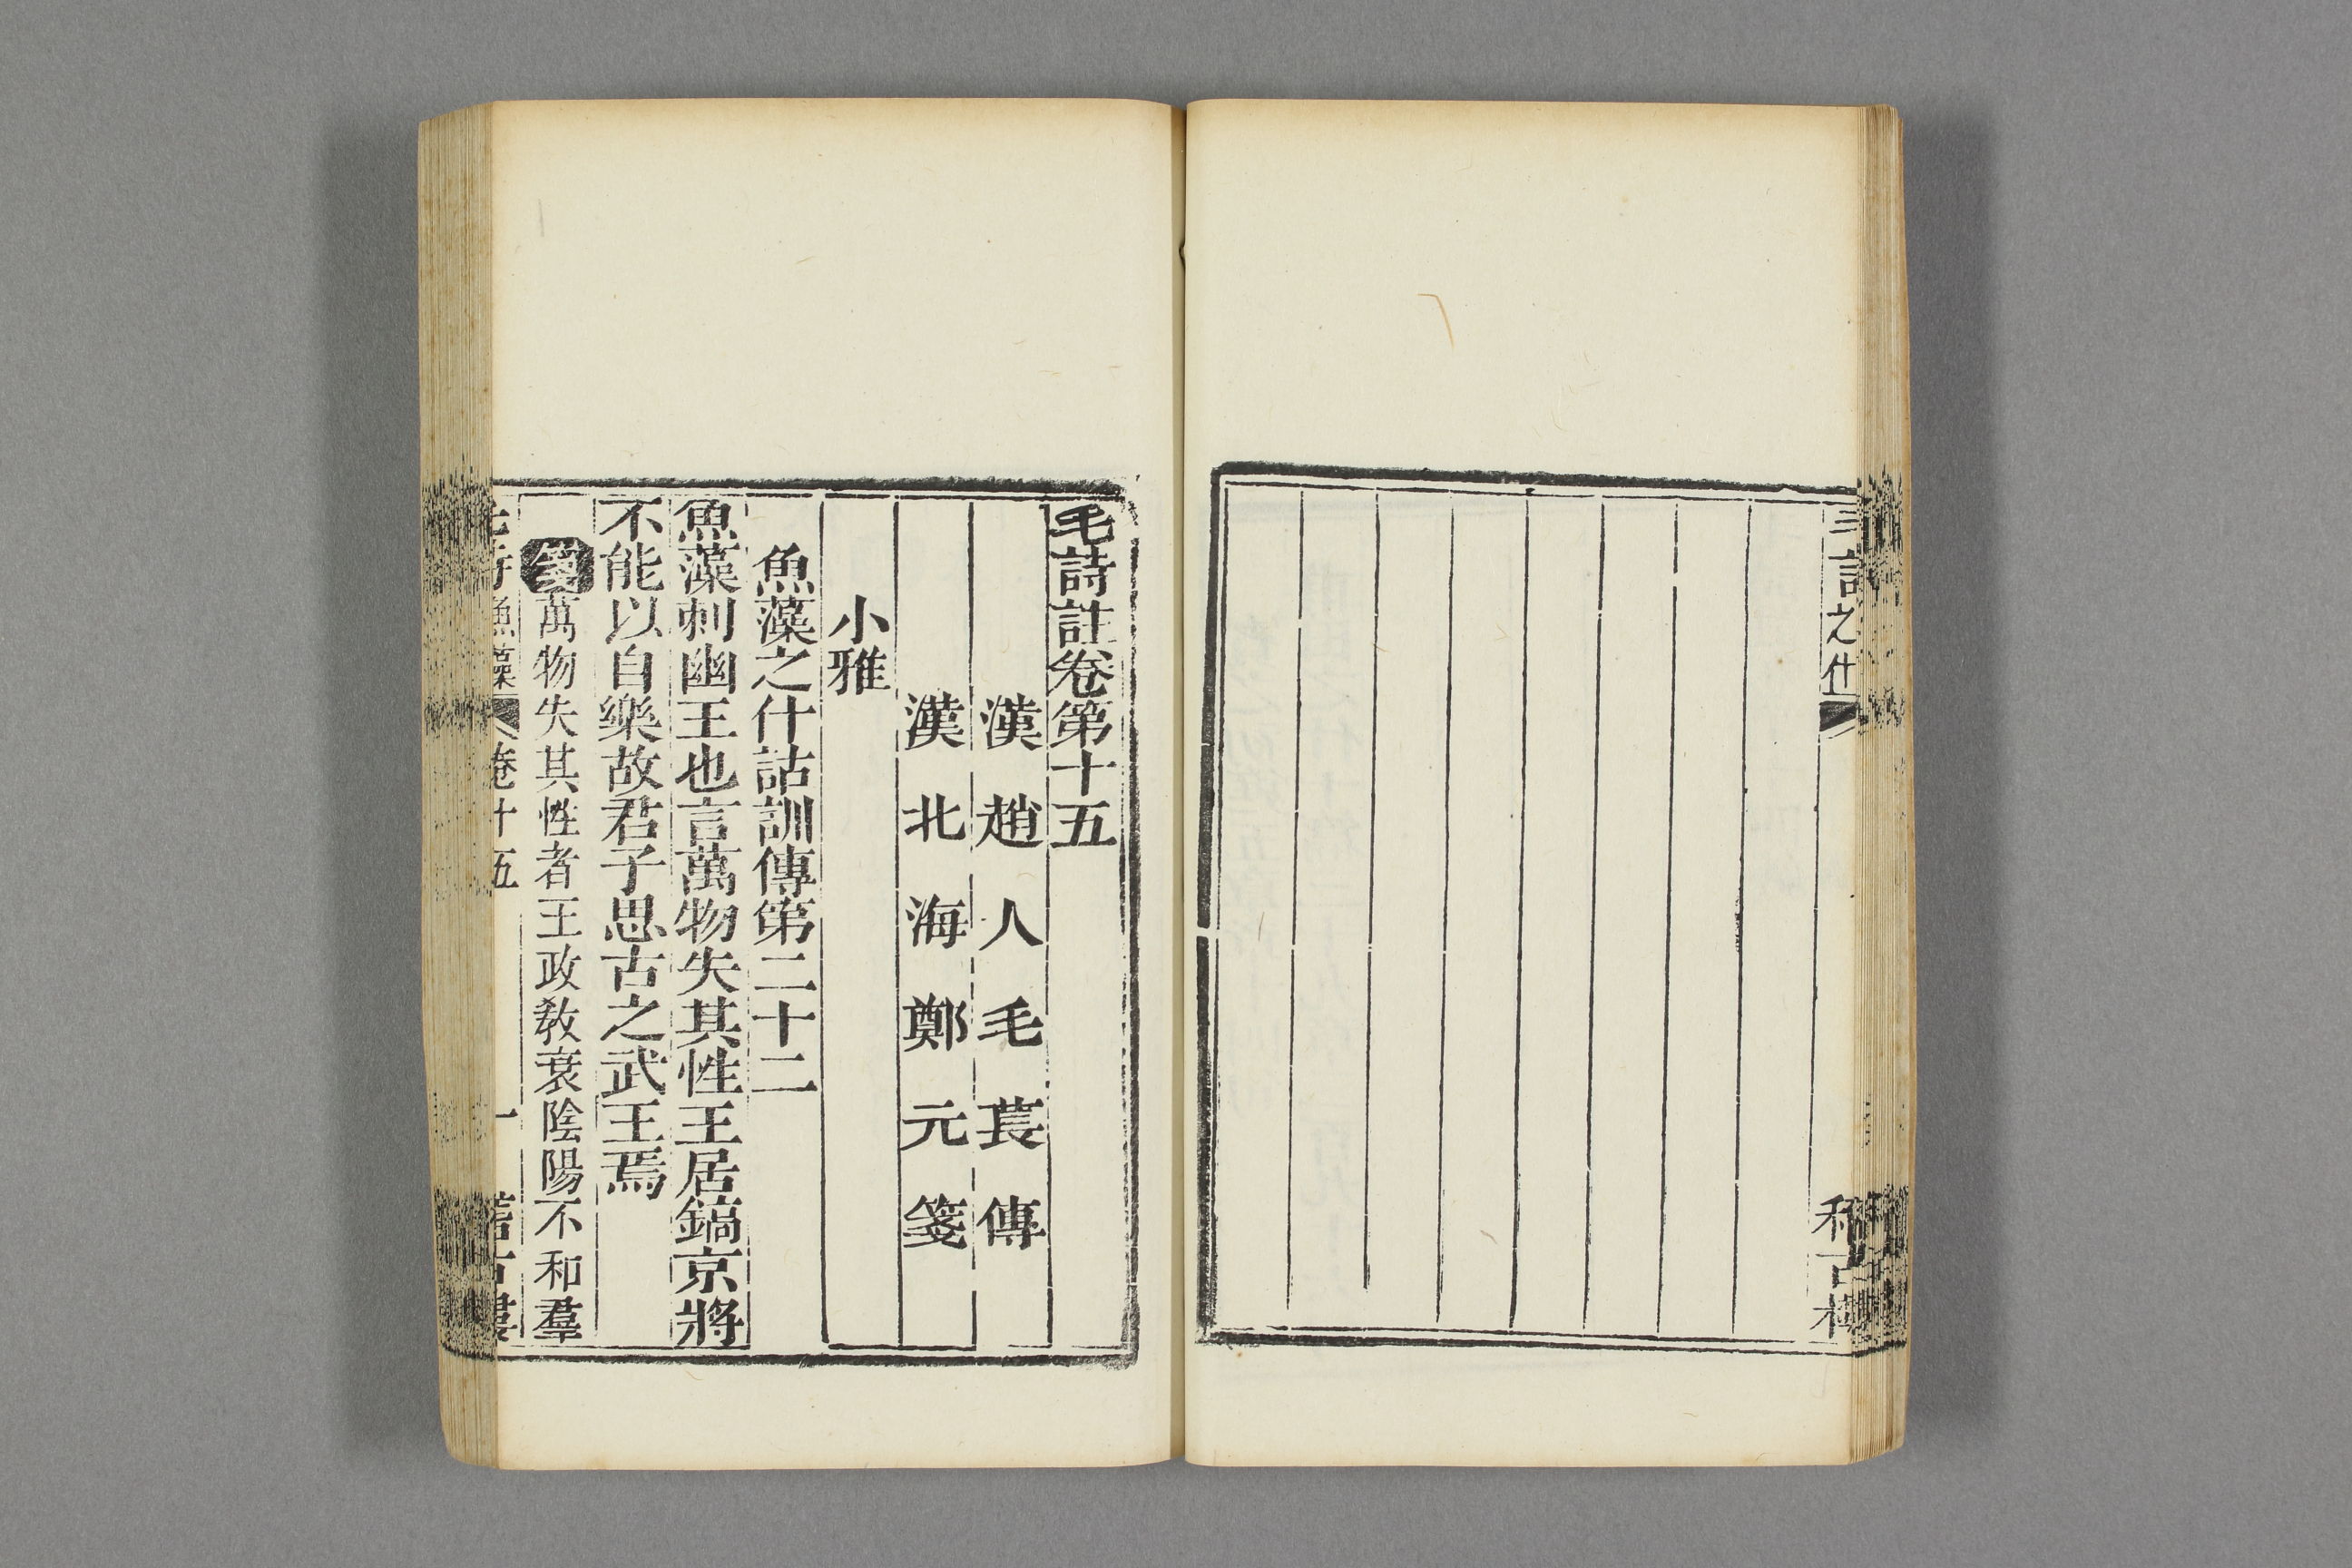 之什
毛詩註卷第十五
漢趙人毛萇傳
漢北海鄭元箋
小雅
魚藻之什詁訓傳第二十二
魚藻刺幽王也言萬物失其性王居鎬京將
不能以自樂故君子思古之武王焉
箋萬物失其性者王政教衰陰陽不和羣
魚藻 卷十五 一